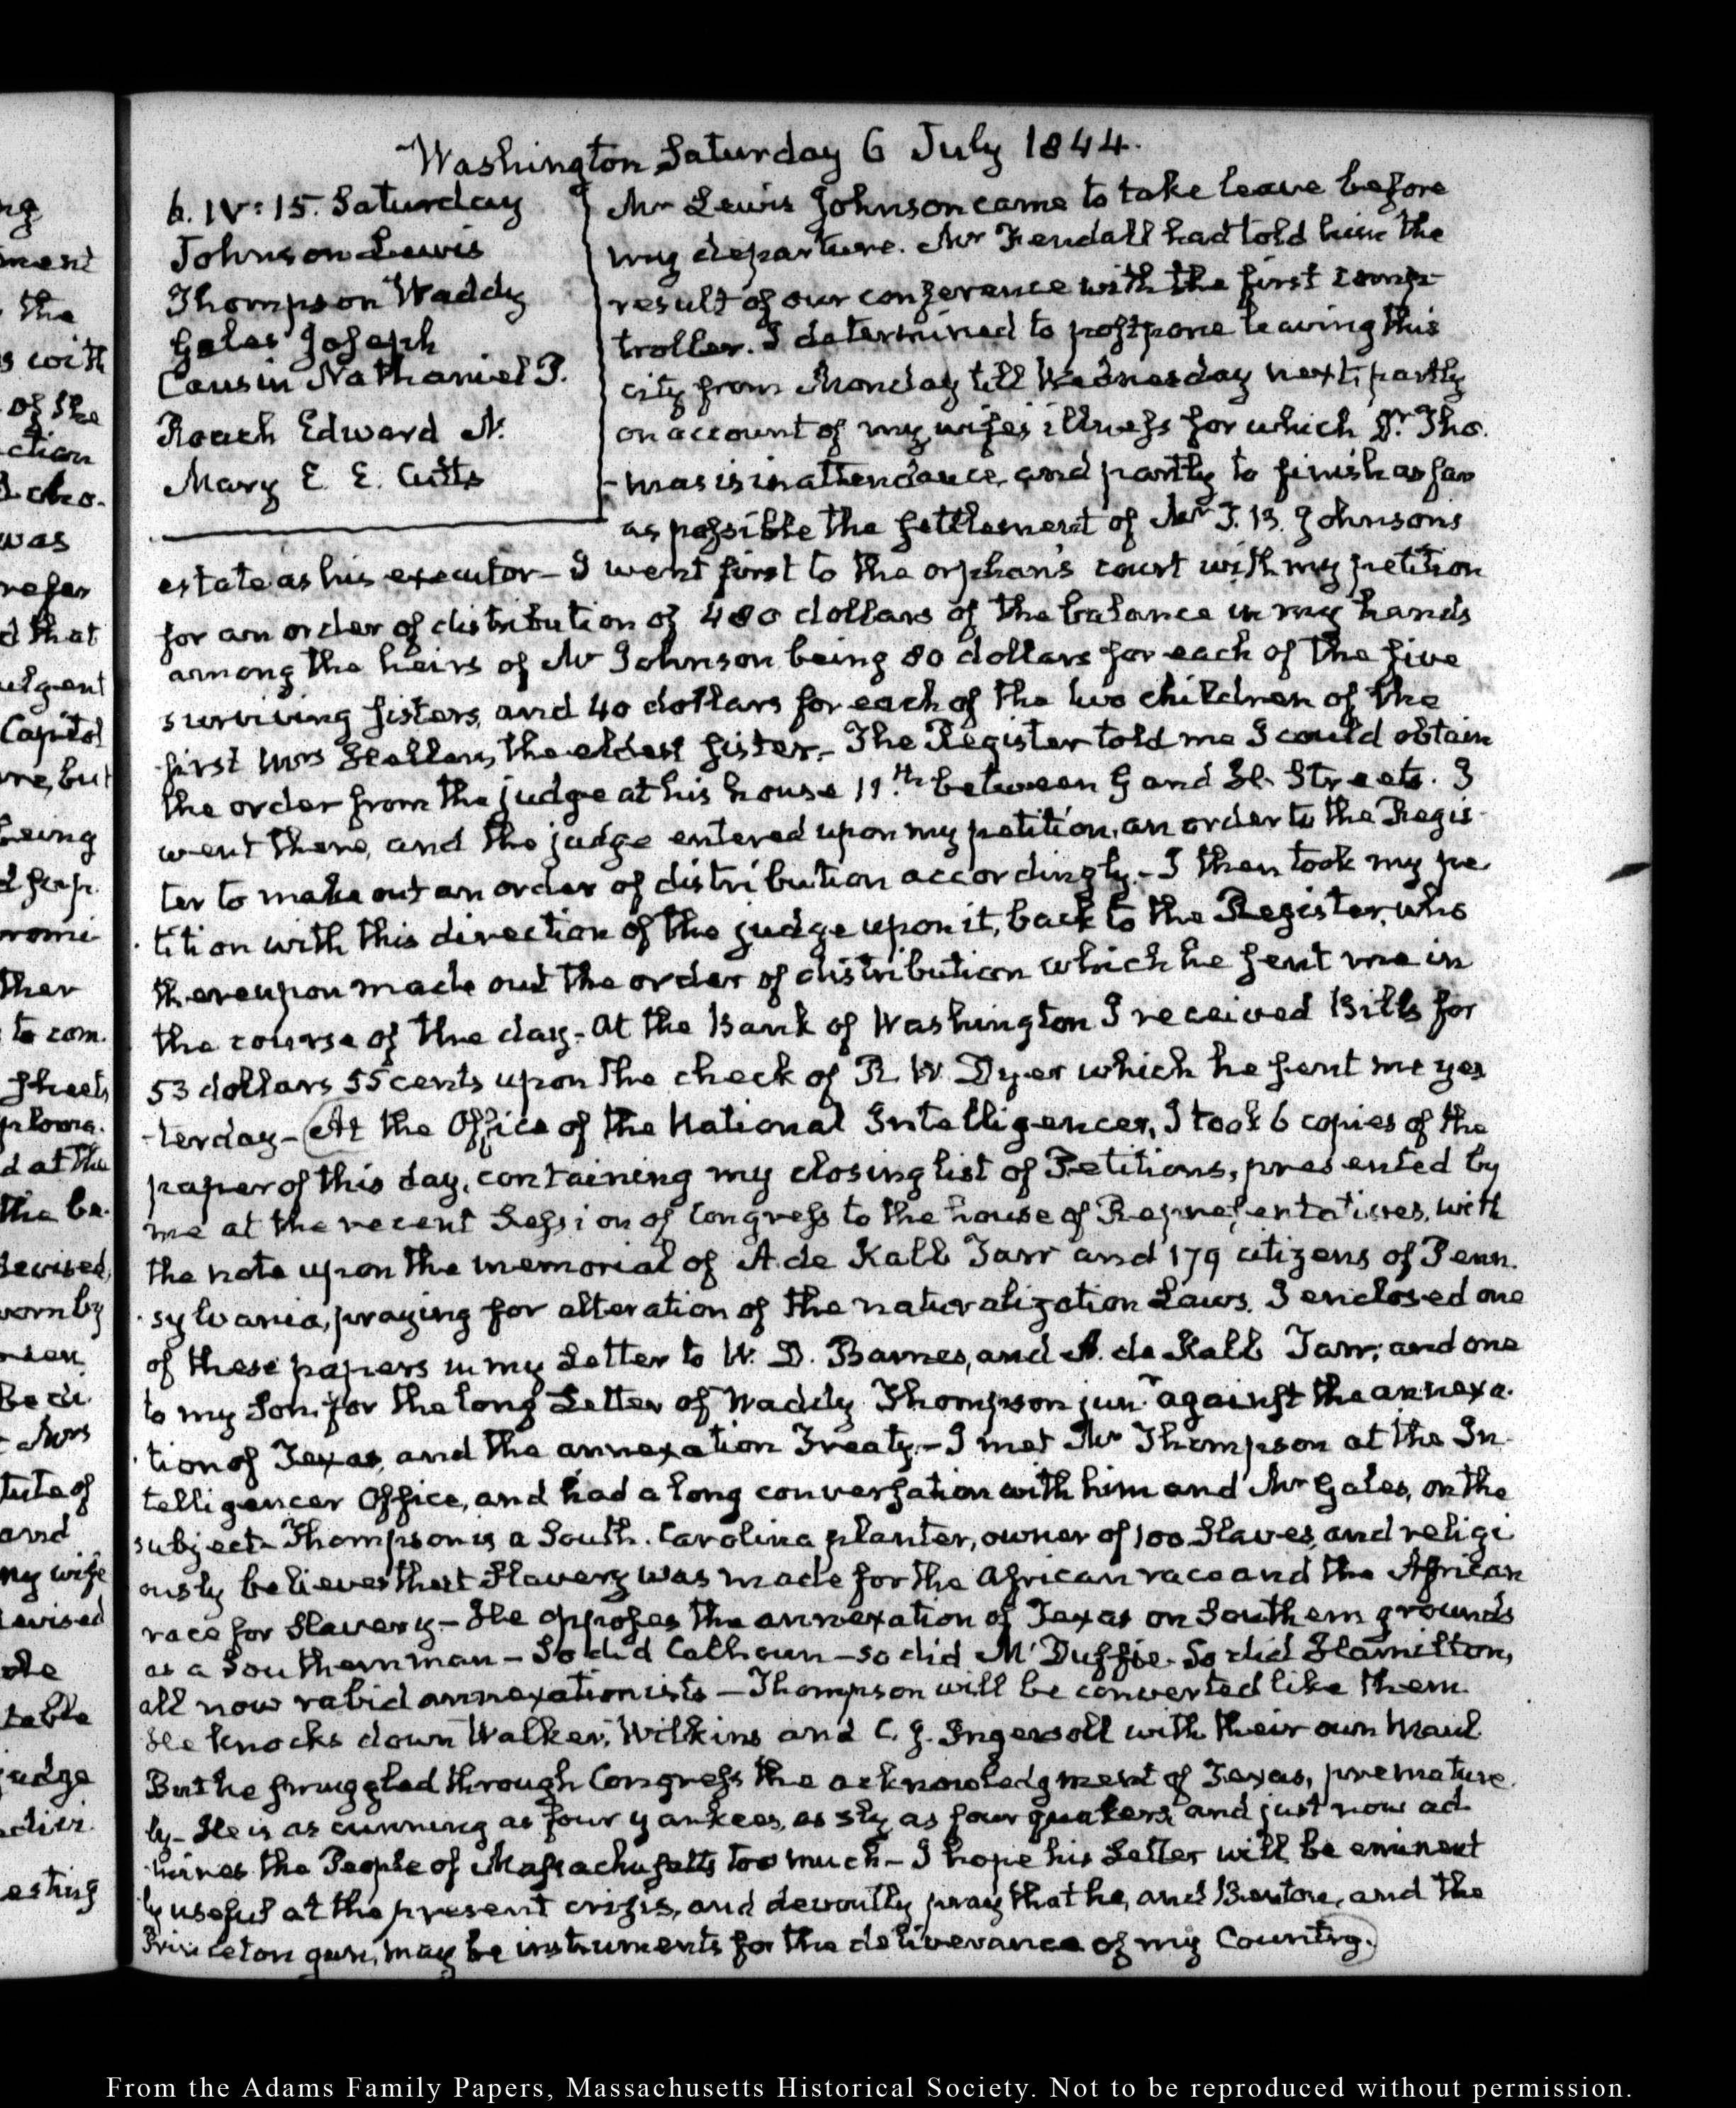 Washington Saturday 6 July 1844.
6. IV: 15. Saturday
Johnson Lewis
Thompson Waddy
Gales Joseph
Causin Nathaniel P.
Roach Edward N.
Mary E. E. Cutts
Mr Lewis Johnson came to take leave before
my departure. Mr Kendall had told him the
result of our conference with the first comp-
troller. I determined to postpone leaving this
city from Monday till Wednesday next, partly
on account of my wife's illness for which Dr. Tho.
-mas is in attendance, and partly to finish as far
as possible the settlement of Mr T. B. Johnsons
estate as his executor – I went first to the orphan's court with my petition
for an order of distribution of 480 dollars of the balance in my hands
among the heirs of Mr Johnson being 80 dollars for each of the five
surviving sisters, and 40 dollars for each of the two children of the
first Mrs Hellen, the eldest sister. – The Register told me I could obtain
the order from the judge at his house 11th between G and H. Streets. I
went there, and the judge entered upon my petition, an order to the Regis-
ter to make out an order of distribution accordingly. – I then took my pe
tition with this direction of the judge upon it, back to the Register, who
thereupon made out the order of distribution which he sent me in
the course of the day – At the Bank of Washington I received Bills for
53 dollars 55 cents upon the check of R. W. Dyer which he sent me yes
-terday – (At the Office of the National Intelligencer, I took 6 copies of the
paper of this day, containing my closing list of Petitions, presented by
me at the recent Session of Congress to the house of Representatives, with
the note upon the memorial of A. de Kalb Tarr and 179 citizens of Penn.
sylvania, praying for alteration of the naturalization Laws. I enclosed one
of these papers in my Letter to W. D. Barnes, and A. de Kalb Tarr; and one
to my Son, for the long Letter of Waddy Thompson junr against the annexa.
tion of Texas, and the annexation Treaty. – I met Mr Thompson at the In-
telligencer Office, and had a long conversation with him and Mr Gales, on the
subject – Thompson is a South. Carolina planter, owner of 100 Slaves, and religi
ously believes that Slavery was made for the African race and the African
race for Slavery. – He opposes the annexation of Texas on Southern grounds
as a Southern man – So did Calhoun – so did McDuffie – So did Hamilton,
all now rabid annexationists – Thompson will be converted like them.
He knocks down Walker, Wilkins and C. J. Ingersoll with their own Maul
But he smuggled through Congress the acknowledgment of Texas, premature.
ly – He is as cunning as four yankees, as sly as four quakers and just now ad.
mires the People of Massachusetts too much – I hope his Letter will be eminent
ly useful at the present crisis, and devoutly pray that he, and Benton, and the
Princeton gun, may be instruments for the deliverance of my Country.)
From the Adams Family Papers, Massachusetts Historical Society. Not to be reproduced without permission.